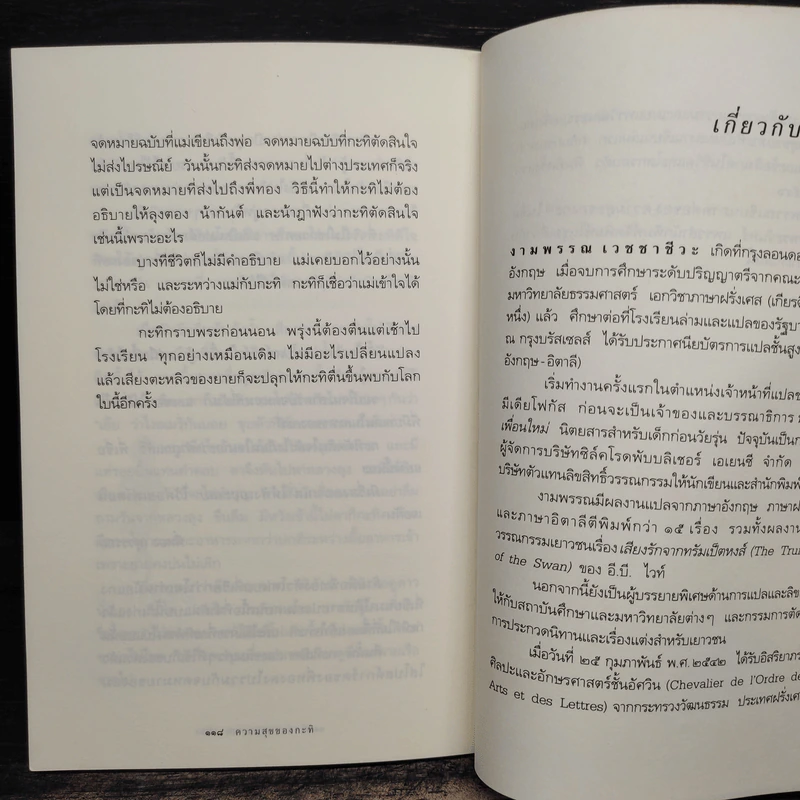 จดหมายฉบับที่แม่เขียนถึงพ่อ จดหมายฉบับที่กะทิตัดสินใจ
ไม่ส่งไปรษณีย์ วันนั้นกะทิส่งจดหมายไปต่างประเทศก็จริง
แต่เป็นจดหมายที่ส่งไปถึงพี่ทอง วิธีนี้ทำให้กะทิไม่ต้อง
อธิบายให้ลุงตอง น้ากันต์ และน้าฎาฟังว่ากะทิตัดสินใจ
เช่นนี้เพราะอะไร
บางทีชีวิตก็ไม่มีคำอธิบาย แม่เคยบอกไว้อย่างนั้น
ไม่ใช่หรือ และระหว่างแม่กับกะทิ กะทิก็เชื่อว่าแม่เข้าใจได้
โดยที่กะทิไม่ต้องอธิบาย
กะทิกราบพระก่อนนอน พรุ่งนี้ต้องตื่นแต่เช้าไป
โรงเรียน ทุกอย่างเหมือนเดิม ไม่มีอะไรเปลี่ยนแปลง
แล้วเสียงตะหลิวของยายก็จะปลุกให้กะทิตื่นขึ้นพบกับโลก
ใบนี้อีกครั้ง
๑๑๘ ความสุขของกะทิ
เกี่ยวกับ
งามพรรณ เวชชาชีวะ เกิดที่กรุงลอนดอ
อังกฤษ เมื่อจบการศึกษาระดับปริญญาตรีจากคณะ
มหาวิทยาลัยธรรมศาสตร์ เอกวิชาภาษาฝรั่งเศส (เกียรติ
หนึ่ง) แล้ว ศึกษาต่อที่โรงเรียนล่ามและแปลของรัฐบา
ณ กรุงบรัสเซลส์ ได้รับประกาศนียบัตรการแปลชั้นสูง
อังกฤษ-อิตาลี)
เริ่มทำงานครั้งแรกในตำแหน่งเจ้าหน้าที่แปลข
มีเดียโฟกัส ก่อนจะเป็นเจ้าของและบรรณาธิการ
เพื่อนใหม่ นิตยสารสำหรับเด็กก่อนวัยรุ่น ปัจจุบันเป็นก
ผู้จัดการบริษัทซิล์คโรดพับบลิเชอร์ เอเยนซี จำกัด
บริษัทตัวแทนลิขสิทธิ์วรรณกรรมให้นักเขียนและสำนักพิมพ์
งามพรรณมีผลงานแปลจากภาษาอังกฤษ ภาษาฝ
และภาษาอิตาลีตีพิมพ์กว่า ๑๕ เรื่อง รวมทั้งผลงาน
วรรณกรรมเยาวชนเรื่อง เสียงรักจากทรัมเป็ตหงส์ (The Trum
of the Swan) ของ อี.บี. ไวท์
นอกจากนี้ยังเป็นผู้บรรยายพิเศษด้านการแปลและลิข
ให้กับสถาบันศึกษาและมหาวิทยาลัยต่างๆ และกรรมการตัด
การประกวดนิทานและเรื่องแต่งสำหรับเยาวชน
เมื่อวันที่ ๒๕ กุมภาพันธ์ พ.ศ. ๒๕๔๒ ได้รับอิสริยาภร
ศิลปะและอักษรศาสตร์ชั้นอัศวิน (Chevalier de l'Ordre de
Arts et des Lettres) จากกระทรวงวัฒนธรรม ประเทศฝรั่งเศ